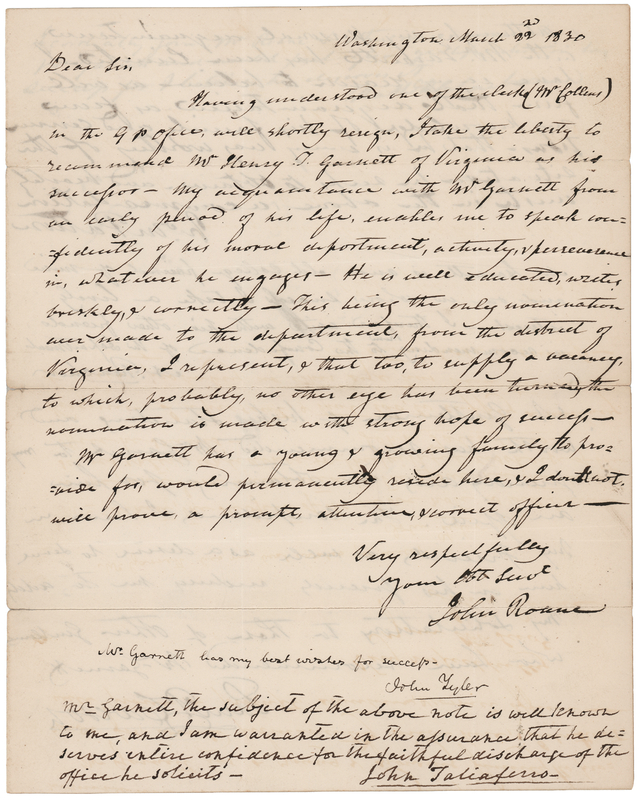 Washington March 22d 1830
Dear Sir,
Having understood one of the clerks (Mr Collins)
in the G P office, will shortly resign, I take the liberty to
recommend Mr Henry T. Garnett of Virginia as his
successor — My acquaintance with Mr Garnett from
an early period of his life, enables me to speak con=
=fidently of his moral deportment, activity, & perseverence
in, whatever he engages — He is well educated, writes
briskly, & correctly — This being the only nomination
ever made to the department, from the district of
Virginia, I represent, & that too, to supply a vacancy,
to which, probably, no other eye has been turned, the
nomination is made with strong hope of success —
Mr Garnett has a young & growing family to pro=
=vide for, would permanently reside here, & I doubt not,
will prove, a prompt, attentive, & correct officer —
Very respectfully
your Obt Servt
John Roane
Mr. Garnett has my best wishes for success-
John Tyler
Mr Garnett, the subject of the above note is well known
to me, and I am warranted in the assurance that he de-
serves entire confidence for the faithful discharge of the
office he solicits —
John Taliaferro-